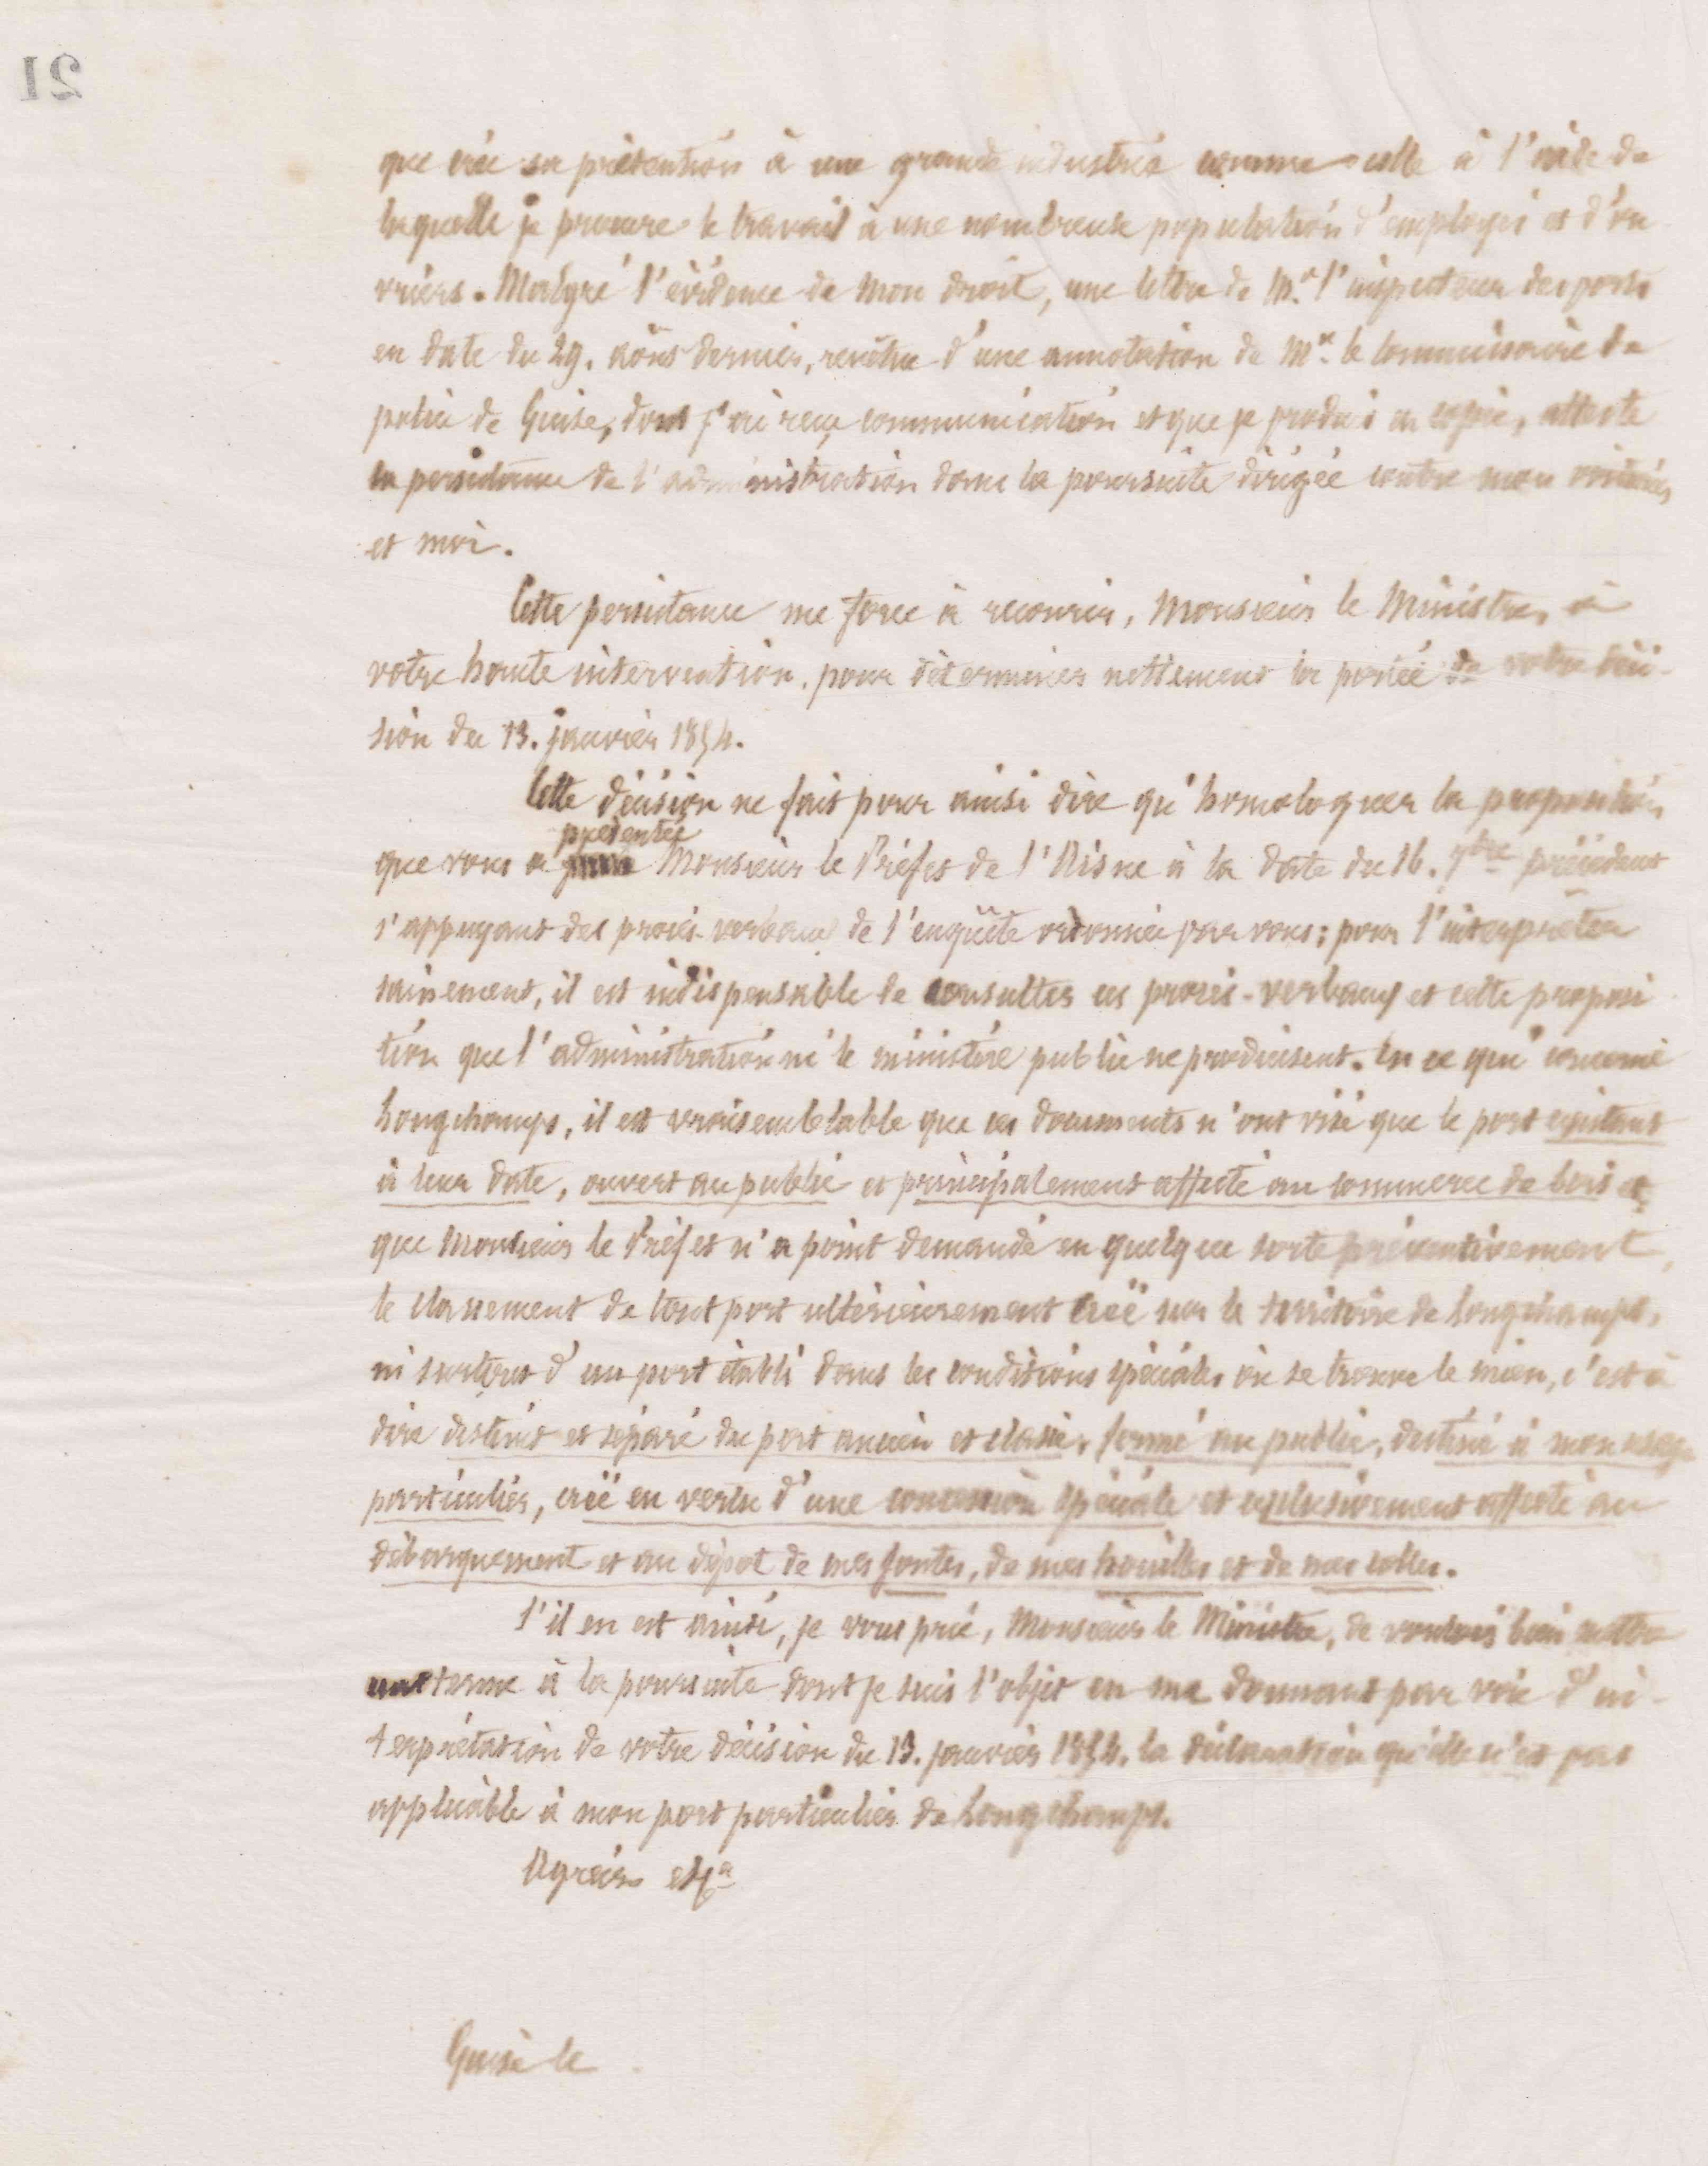 21
que crée sa prétention à une grande industrie comme celle à l'aide de
laquelle je procure le travail à une nombreuse population d'employés et d'ou
vriers. Malgré l'évidence de mon droit, une lettre de Mr. l'inspecteur des ports
en date du 29. août dernier, revêtue d'une annotation de Mr. le Commissaire de
police de Guise, dont j'ai reçu communication et que je produis en copie, atteste
la persistance de l'administration dans la poursuite dirigée contre mon voiturier
et moi.
Cette persistance me force à recourir, Monsieur le Ministre, à
votre haute intervention. pour déterminer nettement la portée de votre déci-
sion du 13. janvier 1854.
Cette décision ne fait pour ainsi dire qu'homologuer la proposition
présentée
que vous a Monsieur le Préfet de l'Aisne à la date du 16. 7bre précédent
s'appuyant des procès-verbaux de l'enquête ordonnée par vous; pour l'interpréter
sainement, il est indispensable de consulter ces procès-verbaux et cette proposi
tion que l'administration ni le ministère public ne produisent. En ce qui concerne
Longchamps, il est vraisemblable que ces documents n'ont visé que le port existant
à leur date, ouvert au public et principalement affecté au commerce de bois et
que Monsieur le Préfet n'a point demandé en quelque sorte préventivement
le classement de tout port ultérieurement créé sur le territoire de Longchamps,
ni surtout d'un port établi dans les conditions spéciales où se trouve le mien, c'est à
dire distinct et séparé du port ancien et classé, fermé au public, destiné à mon usage
particulier, créé en vertu d'une concession spéciale et exclusivement affecté au
débarquement et au dépot de mes fontes, de mes houilles et de mes cokes.
S'il en est ainsi, je vous prie, Monsieur le Ministre, de vouloir bien mettre
un terme à la poursuite dont je suis l'objet en me donnant par voie d'in-
terprétation de votre décision du 13. janvier 1854. la déclaration qu'elle n'est pas
applicable à mon port particulier de Longchamps.
Agréer etca
Guise le